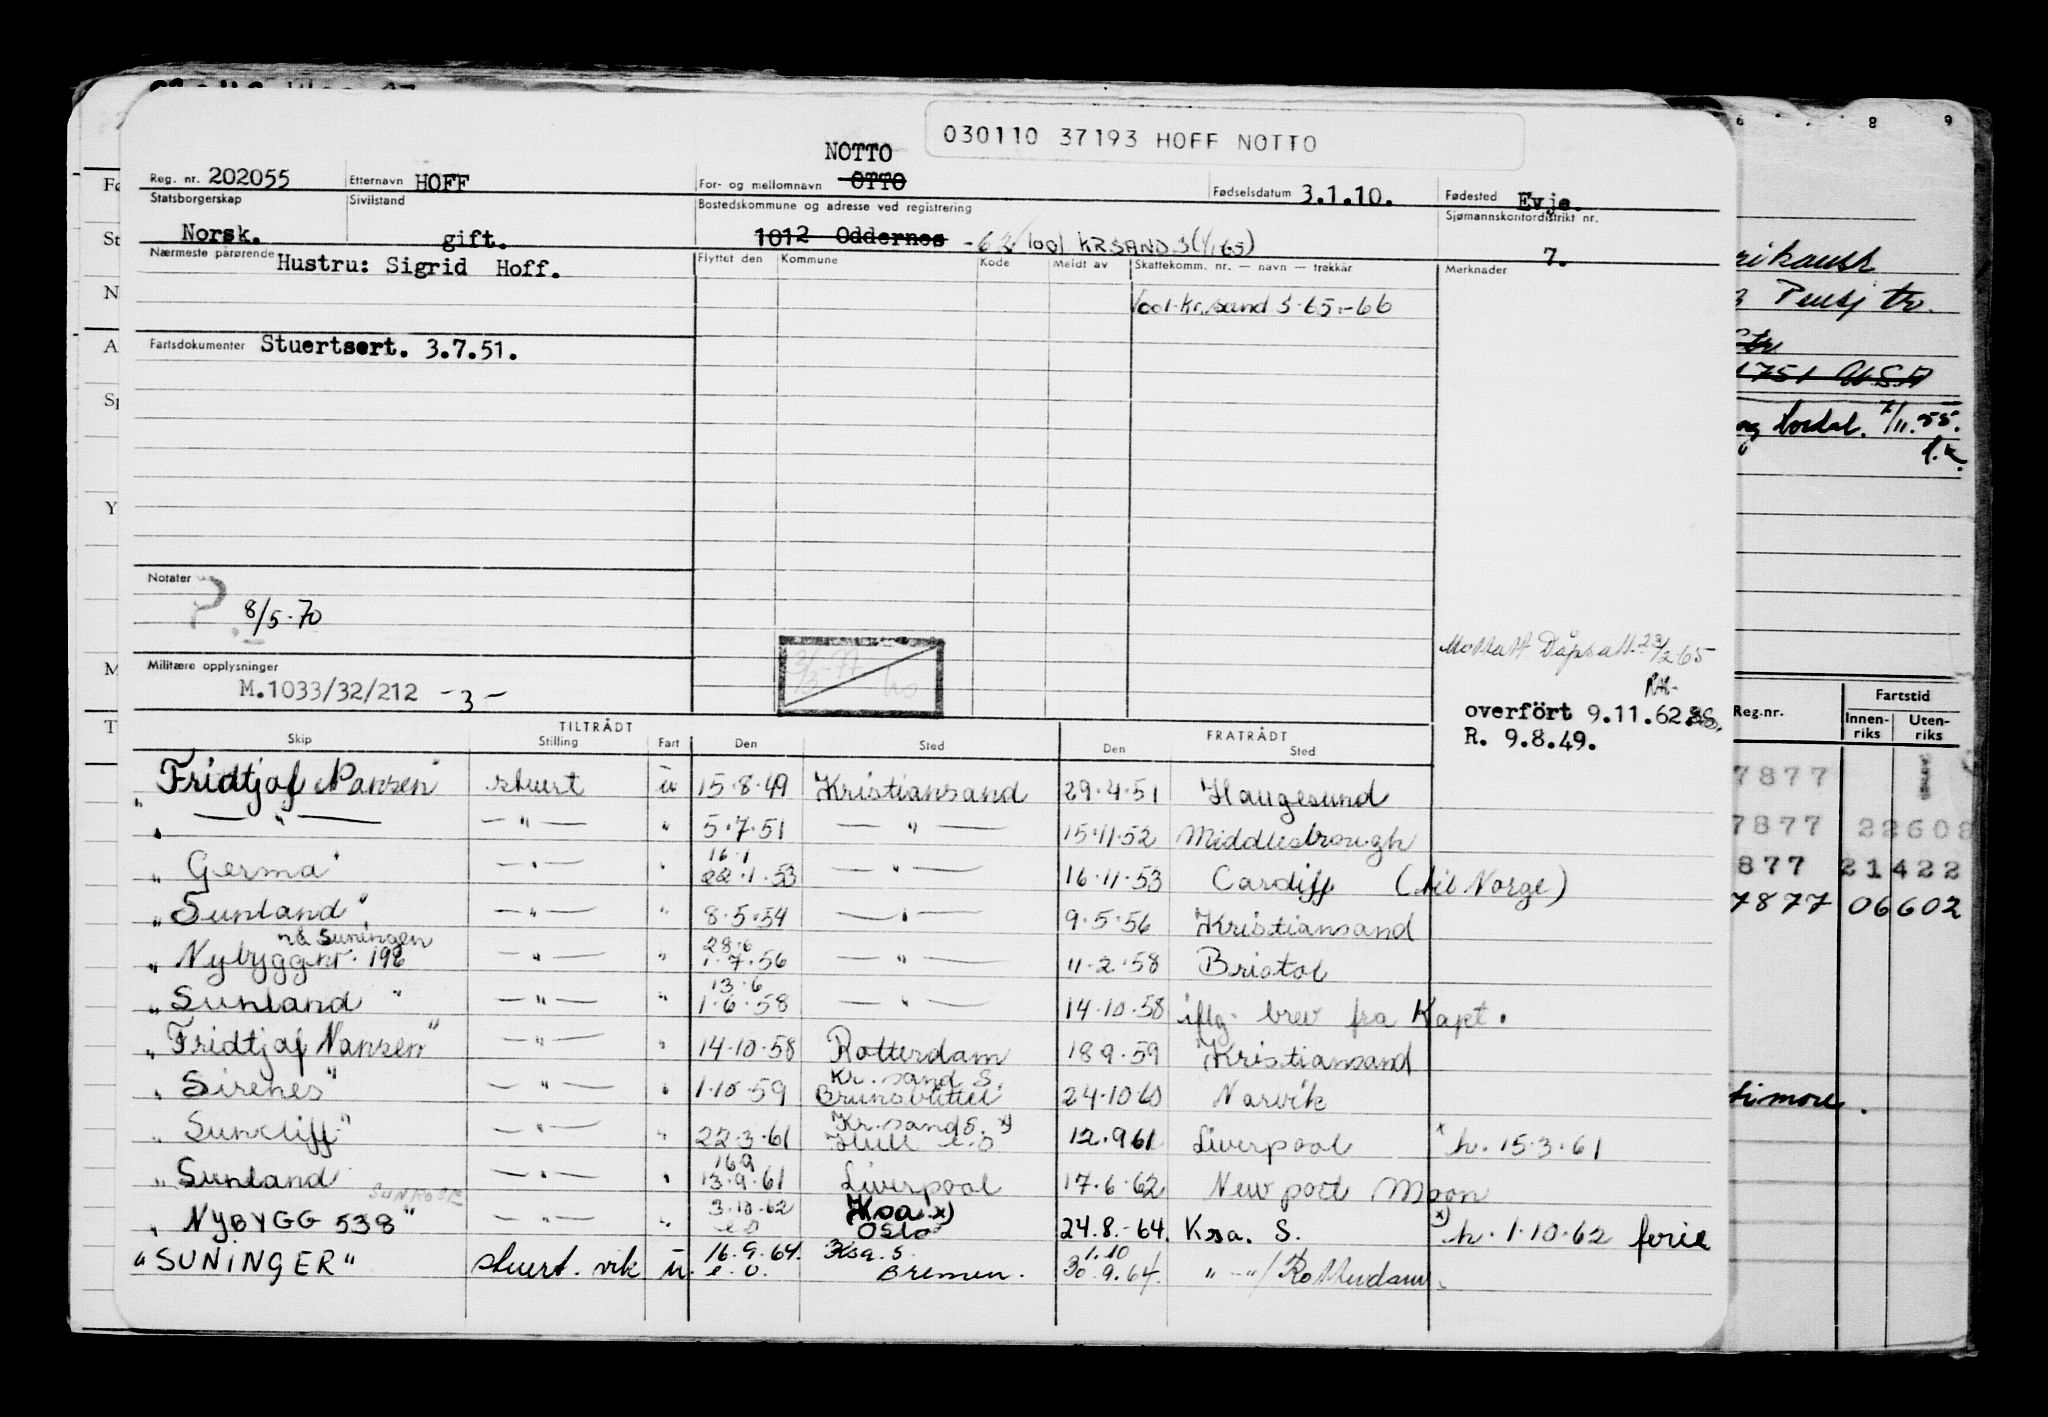 030110 37193 HOFF NOTTO
NOTTO
Reg. nr. 202055 Etternavn HOFF For- og mellomnavn OTTO Fødselsdatum 3.1.10. Fødested Evje.
Statsborgerskap Sivilstand Bostedskommune og adresse ved registrering Sjømannskontordistrikt nr.
Norsk. gift. 1012 Oddernes -63/1001 KRSAND S (1/1 65) 7.
Nærmeste pårørende Hustru: Sigrid Hoff. Flyttet den Kommune Kode Meldt av Skattekomm. nr. — navn — trekkår Merknader
1001 Kr.sand S 65-66
Fartsdokumenter Stuertsert. 3.7.51.
Notater
8/5-70
Militære opplysninger
M.1033/32/212 -3-
Mottatt Dåpsatt. 23/2 65
overfört 9.11.62
R. 9.8.49.
TILTRÅDT FRATRÅDT
Skip Stilling Fart Den Sted Den Sted
"Fridtjof Nansen" stuert u 15.8.49 Kristiansand 29.4.51 Haugesund
" — " — — " — " 5.7.51 — " — 15.11.52 Middlesbrough
16.1
"Germa" — " — " 22.1.53 — " — 16.11.53 Cardiff (til Norge)
"Sunland" — " — " 8.5.54 — " — 9.5.56 Kristiansand
nå Suningen 28.6
"Nybyggnr. 196 — " — " 1.7.56 — " — 11.2.58 Bristol
13.6
"Sunland" — " — " 1.6.58 — " — 14.10.58 iflg. brev fra Kapt.
"Fridtjof Nansen" — " — " 14.10.58 Rotterdam 18 9.59 Kristiansand
Kr.sand S.
"Sirenes" — " — " 1.10.59 Brunsbüttel 24.10 60 Narvik
Kr.sand S. x)
"Suncliff" — " — " 22.3.61 Hull e.o 12.9 61 Liverpool x h. 15.3.61
16.9
"Sunland — " — " 13.9.61 Liverpool 17.6.62 Newport Moon
SUNROSE 3.10.62 Ksa x)
"NYBYGG 538" — " — " e.o Oslo 24.8.-64. Ksa. S. x) h. 1.10.62 ferie
16.9.64. Ksa. S. 1.10
"SUNINGER" stuert. vik u. e.o. Bremen. 30.9.64. " —"/ Rotterdam.
6 8 9
Pensj tr.
1751 U.S.A
7/11.55.
Fartstid
Reg.nr. Innen-riks Uten-riks
7877
7877 22602
877 21422
7877 06602
timore.